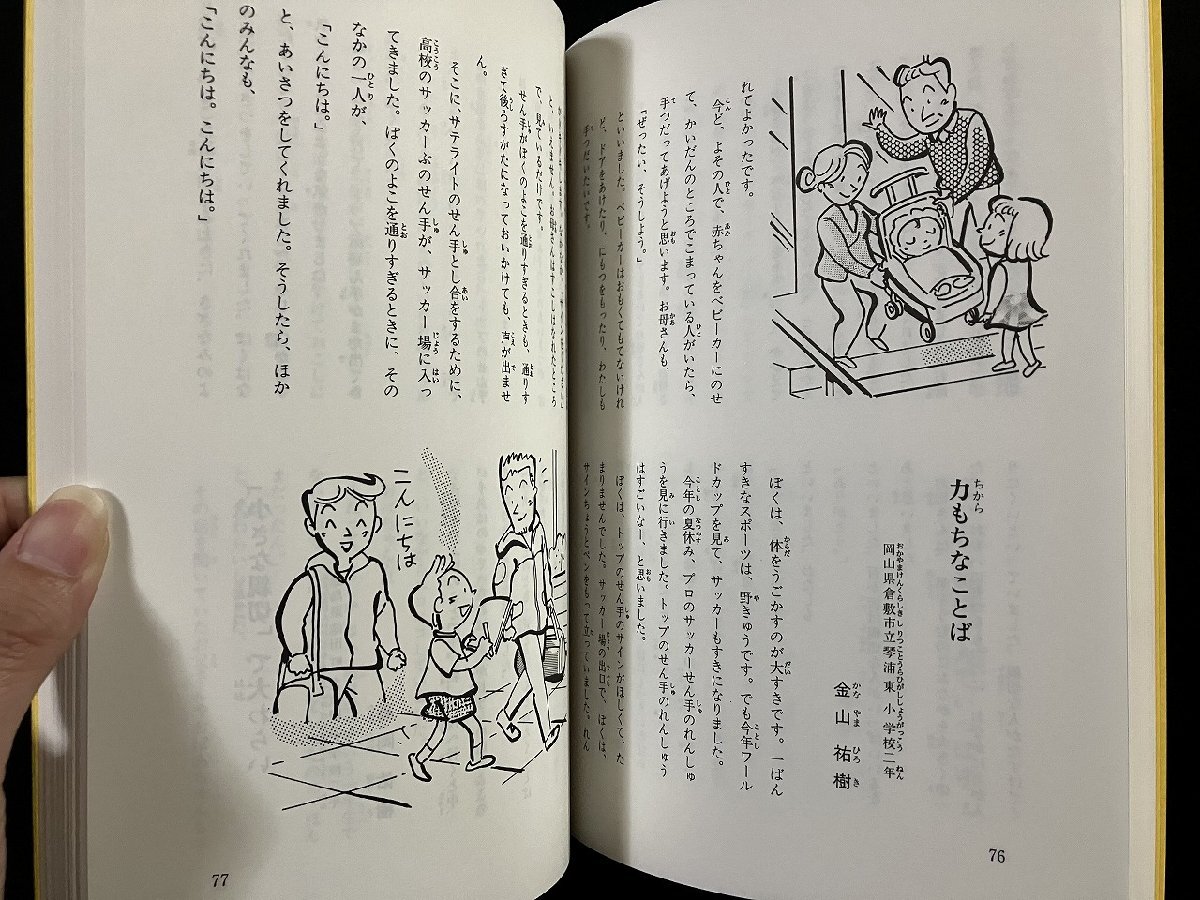 れてよかったです。
今ど、よその人で、赤ちゃんをベビーカーにのせ
て、かいだんのところでこまっている人がいたら、
手つだってあげようと思います。お母さんも
「ぜったい、そうしよう。」
といいました。ベビーカーはおもくてもてないけれ
ど、ドアをあけたり、にもつをもったり、わたしも
手つだいたいです。
力もちなことば
岡山県倉敷市立琴浦東小学校二年
金山祐樹
ぼくは、体をうごかすのが大すきです。一ばん
すきなスポーツは、野きゅうです。でも今年フール
ドカップを見て、サッカーもすきになりました。
今年の夏休み、プロのサッカーせん手のれんしゅ
うを見に行きました。トップのせん手のれんしゅう
はすごいなー、と思いました。
ぼくは、トップのせん手のサインがほしくて、た
まりませんでした。サッカー場の出口で、ぼくは、
サインちょうとペンをもって立っていました。れん
76
と、いえません。お母さんはすこしはなれたところ
で、見ているだけです。
せん手がぼくのよこを通りすぎるときも、通りす
ぎて後ろすがたになっておいかけても、声が出ませ
ん。
そこに、サテライトのせん手とし合をするために、
高校のサッカーぶのせん手が、サッカー場に入っ
てきました。ぼくのよこを通りすぎるときに、その
なかの一人が、
「こんにちは。」
と、あいさつをしてくれました。そうしたら、ほか
のみんなも、
「こんにちは。こんにちは。」
こんにちは
77